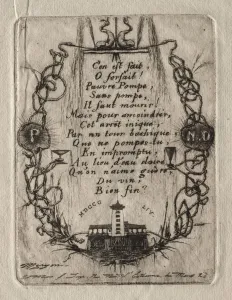 C'en est fait,
O forfait!
Pauvre Pompe,
Sans pompe,
Il faut mourir.
Mais pour amoindrir,
Cet arrêt inique,
Par un tour bachique,
P N.D
Que ne pompes-tu,
En impromptu,
Au lieu d'eau claire,
Qu'on n'aime guère,
Du vin?
Bien fin
MDCCC LIV.